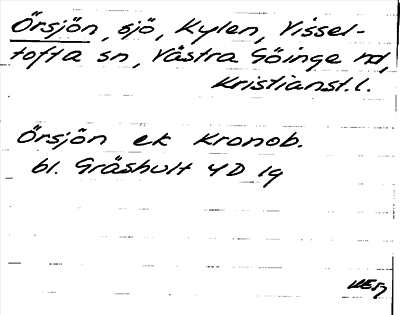 Örsjön, sjö, Kylen, Vissel-
tofta sn, Västra Göinge hd,
Kristianst. l.
Örsjön ek Kronob.
bl. Gråshult 4D 1g